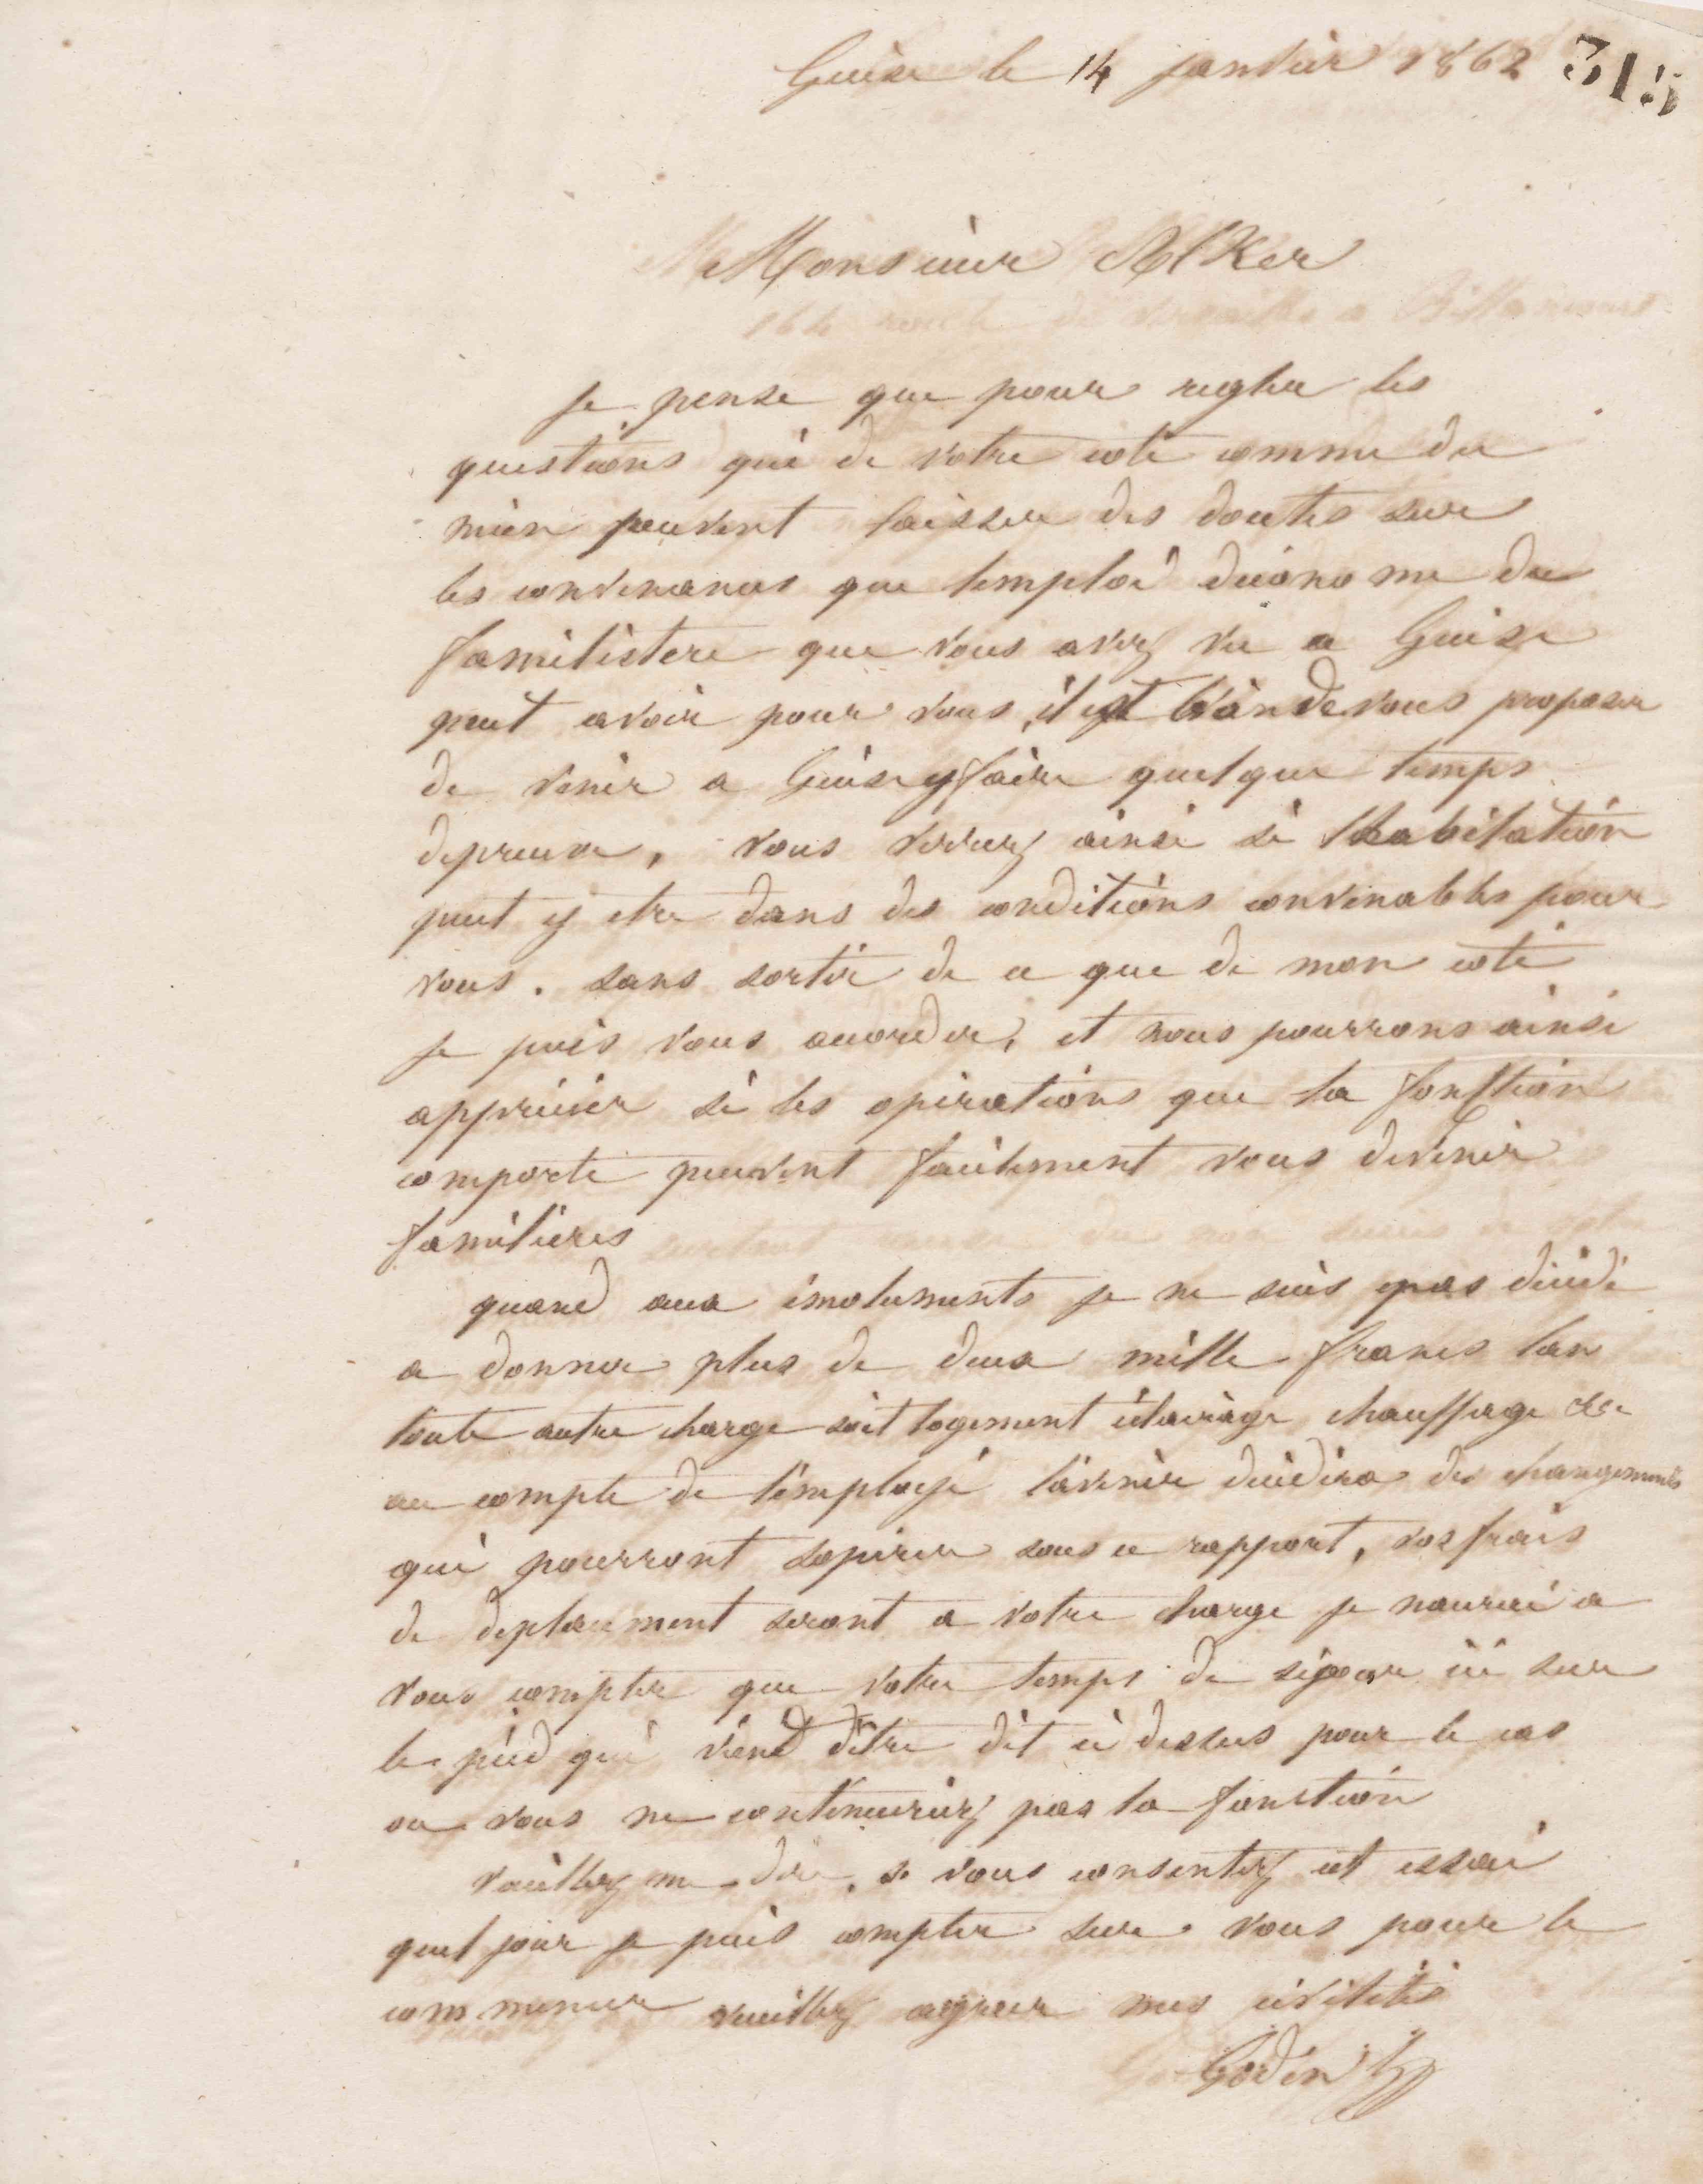 Guise le 14 janvier 1862 315
Monsieur Alker
164 route de Versailles a Billancourt
je pense que pour regler les
questions qui de votre coté comme du
mien peuvent laisser des doutes sur
les convenances que lemploi déconome du
familistere que vous avez vu a Guise
peut avoir pour vous, il est bien de vous proposer
de venir a Guise y faire quelque temps
depreuve, vous verrez ainsi si lhabitation
peut y etre dans des conditions convenables pour
vous. sans sortir de ce que de mon coté
je puis vous accorder, et nous pourrons ainsi
apprécier si les opérations que la fonction
comporte peuvent facilement vous devenir
familieres
quand aux émoluments je ne suis pas décidé
a donner plus de deux mille francs lan
toute autre charge soit logement éclairage chauffage etc
au compte de lemployé lavenir décidera des changements
qui pourront sopérer sous ce rapport, vos frais
de deplacement seront a votre charge je naurai a
vous compter que votre temps de séjour ici sur
le pied qui viend dêtre dit ci dessus pour le cas
ou vous ne continueriez pas la fonction
veuillez me dire, si vous consentez cet essai
quel jour je puis compter sur vous pour le
commencer veuillez agreer mes civilités
Godin